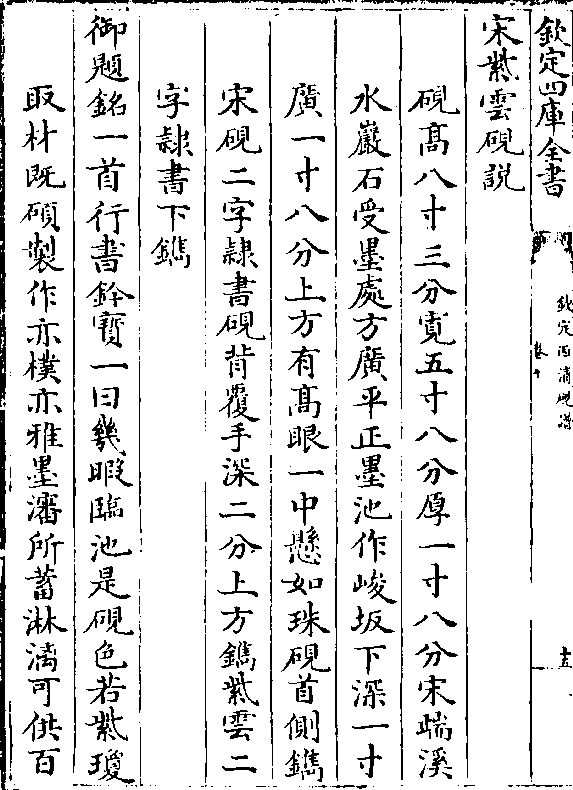 欽定四庫全書
欽定西清硯譜
卷十
十五
宋紫雲硯說
硯高八寸三分寛五寸八分厚一寸八分宋端溪
水巖石受墨處方廣平正墨池作峻坂下深一寸
廣一寸八分上方有高眼一中懸如珠硯首側鐫
宋硯二字隷書硯背覆手深二分上方鐫紫雲二
字隷書下鐫
御題銘一首行書鈐寳一曰幾暇臨池是硯色若紫瓊
取材既碩製作亦樸亦雅墨瀋所蓄淋漓可供百